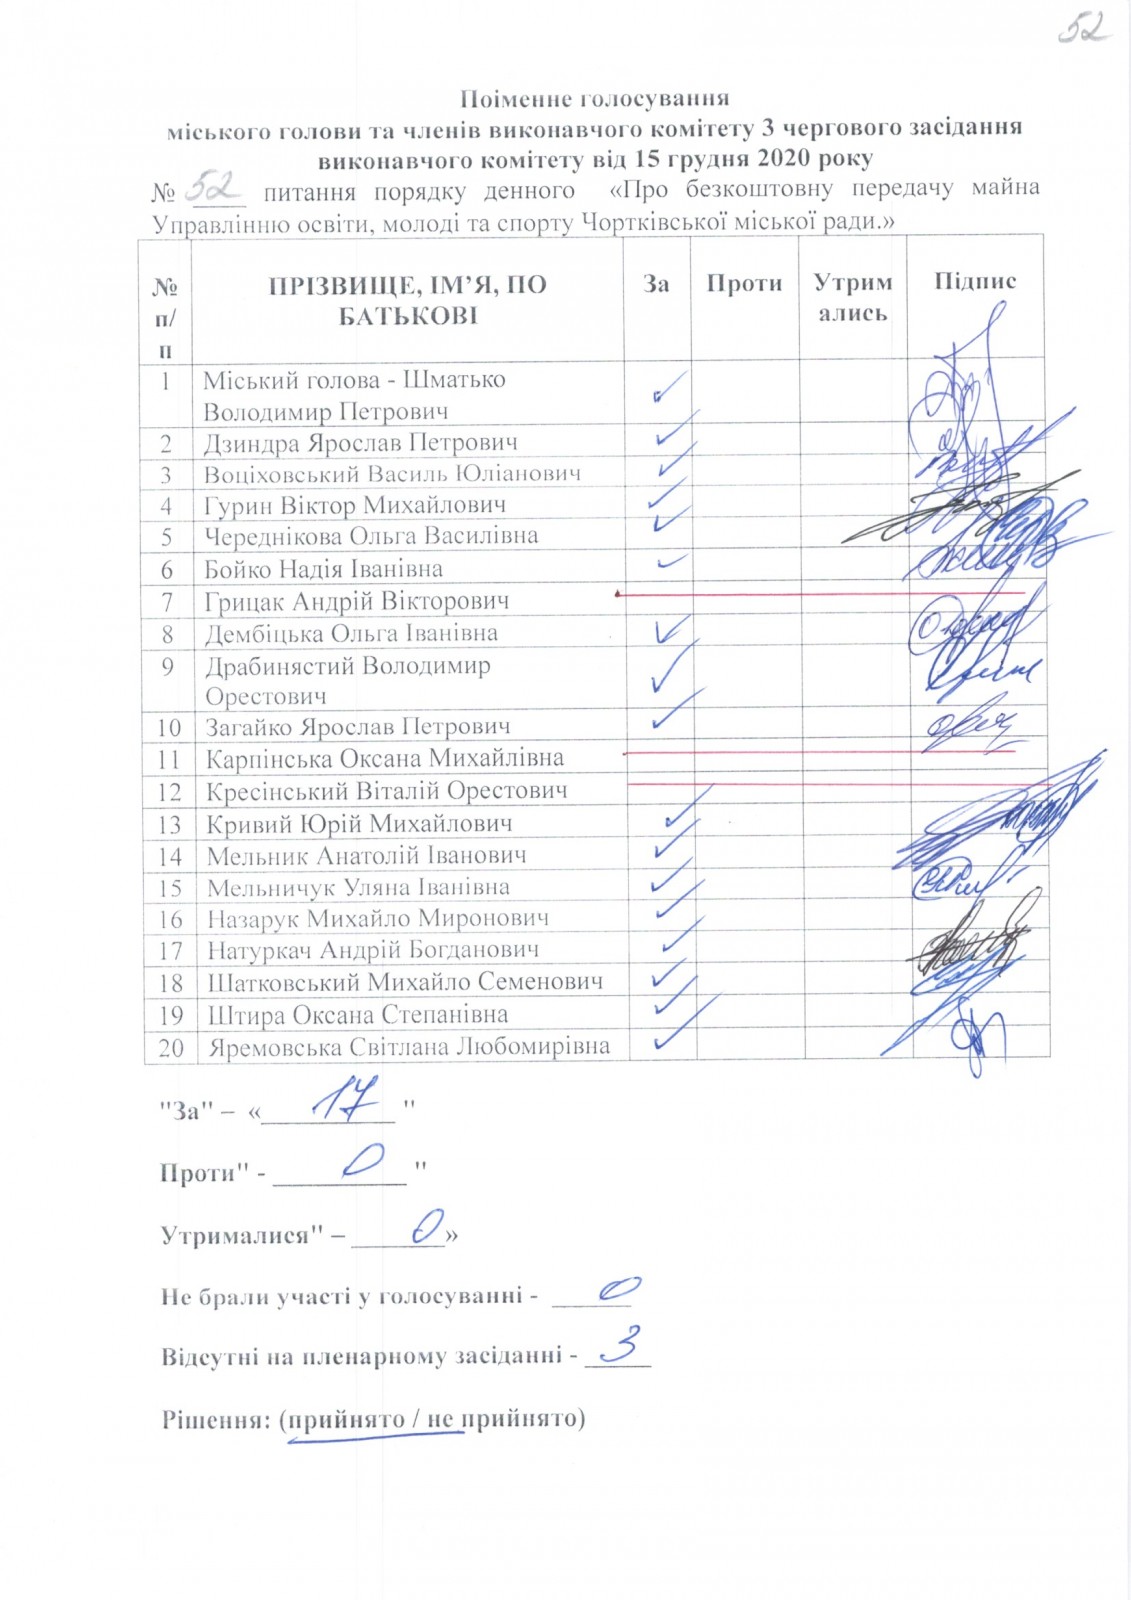 52
Поіменне голосування
міського голови та членів виконавчого комітету 3 чергового засідання
виконавчого комітету від 15 грудня 2020 року
№ 52 питання порядку денного «Про безкоштовну передачу майна
Управлінню освіти, молоді та спорту Чортківської міської ради.»
№ п/п ПРІЗВИЩЕ, ІМ’Я, ПО БАТЬКОВІ За Проти Утримались Підпис
1 Міський голова - Шматько
Володимир Петрович ✓
2 Дзиндра Ярослав Петрович ✓
3 Воціховський Василь Юліанович ✓
4 Гурин Віктор Михайлович ✓
5 Череднікова Ольга Василівна ✓
6 Бойко Надія Іванівна ✓
7 Грицак Андрій Вікторович
8 Дембіцька Ольга Іванівна ✓
9 Драбинястий Володимир
Орестович ✓
10 Загайко Ярослав Петрович ✓
11 Карпінська Оксана Михайлівна
12 Кресінський Віталій Орестович
13 Кривий Юрій Михайлович ✓
14 Мельник Анатолій Іванович ✓
15 Мельничук Уляна Іванівна ✓
16 Назарук Михайло Миронович ✓
17 Натуркач Андрій Богданович ✓
18 Шатковський Михайло Семенович ✓
19 Штира Оксана Степанівна ✓
20 Яремовська Світлана Любомирівна ✓
"За" – « 17 "
Проти" - 0 "
Утрималися" – 0 »
Не брали участі у голосуванні - 0
Відсутні на пленарному засіданні - 3
Рішення: (прийнято / не прийнято)